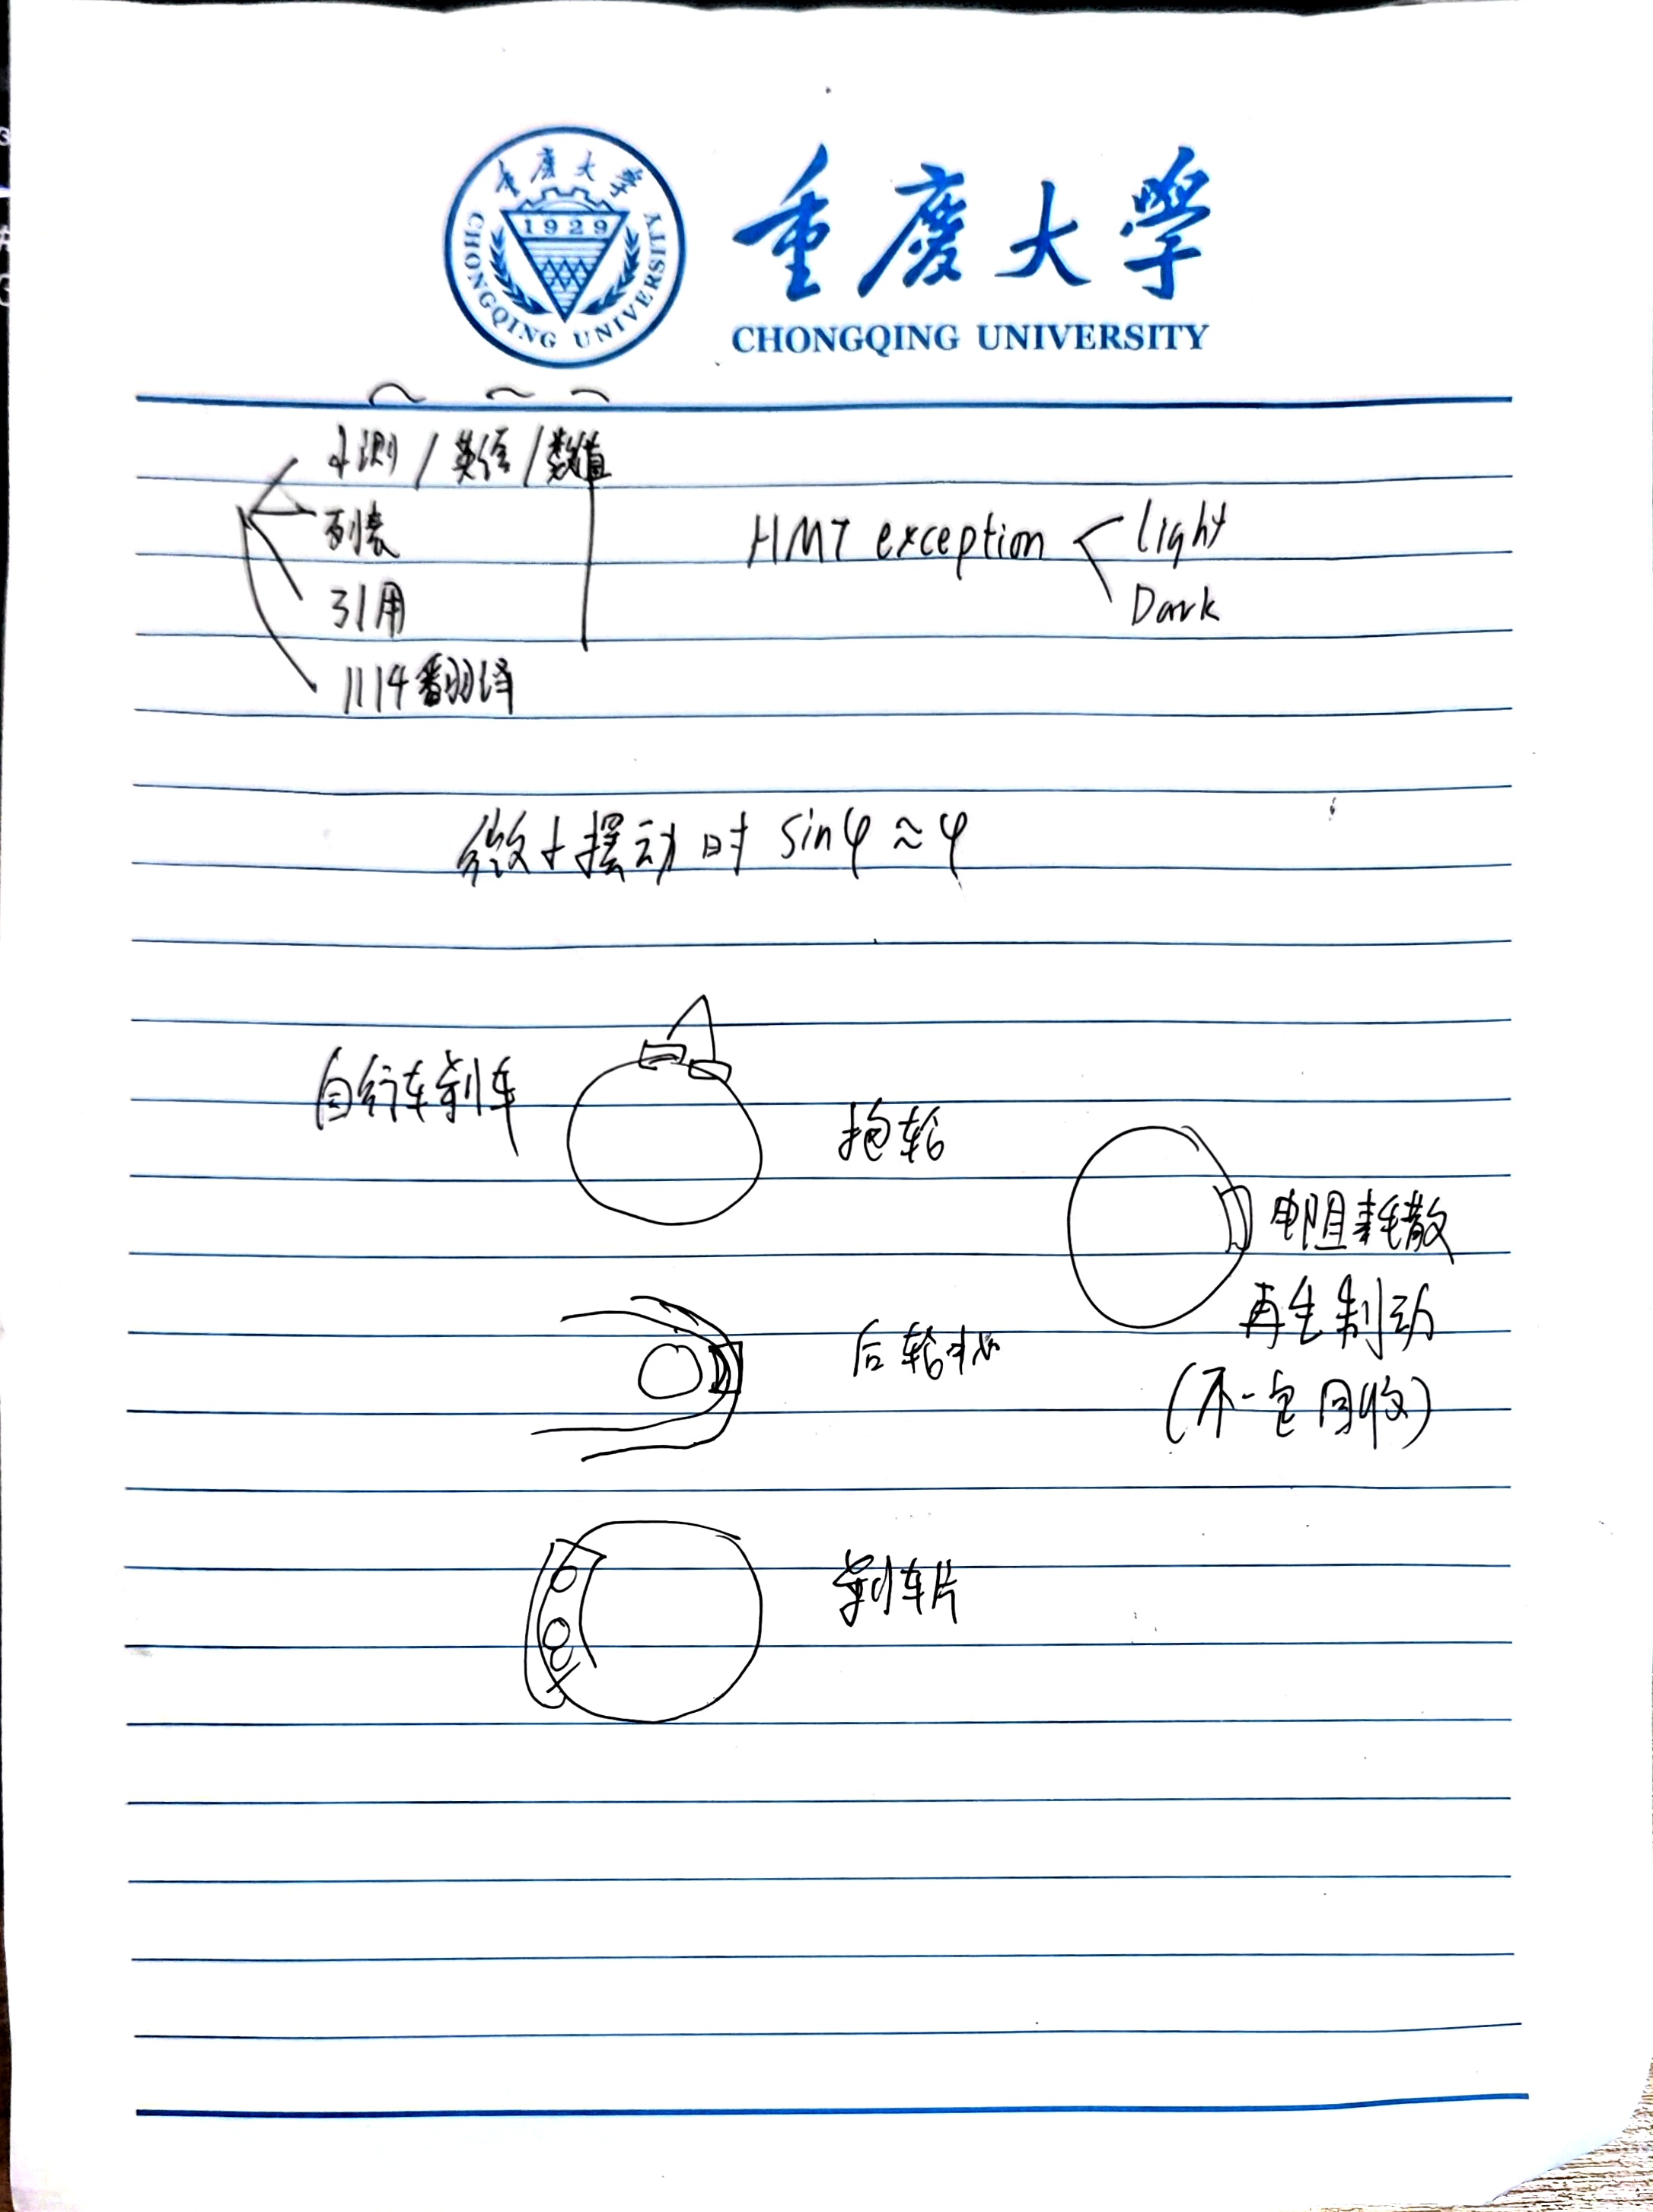 重庆大学
1929
CHONGQING UNIVERSITY
重庆大学
CHONGQING UNIVERSITY
小测/英信/数值
列表
引用
1114翻译
HMT exception
light
Dark
微小摆动时 sinφ≈φ
自行车刹车
抱轮
电阻耗散
再生制动
(不一定回收)
后轮
刹车片